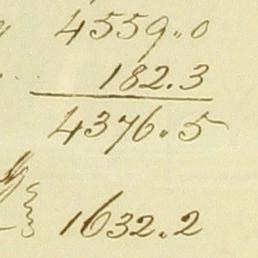 4559.0
182.3
4376.5
1632.2